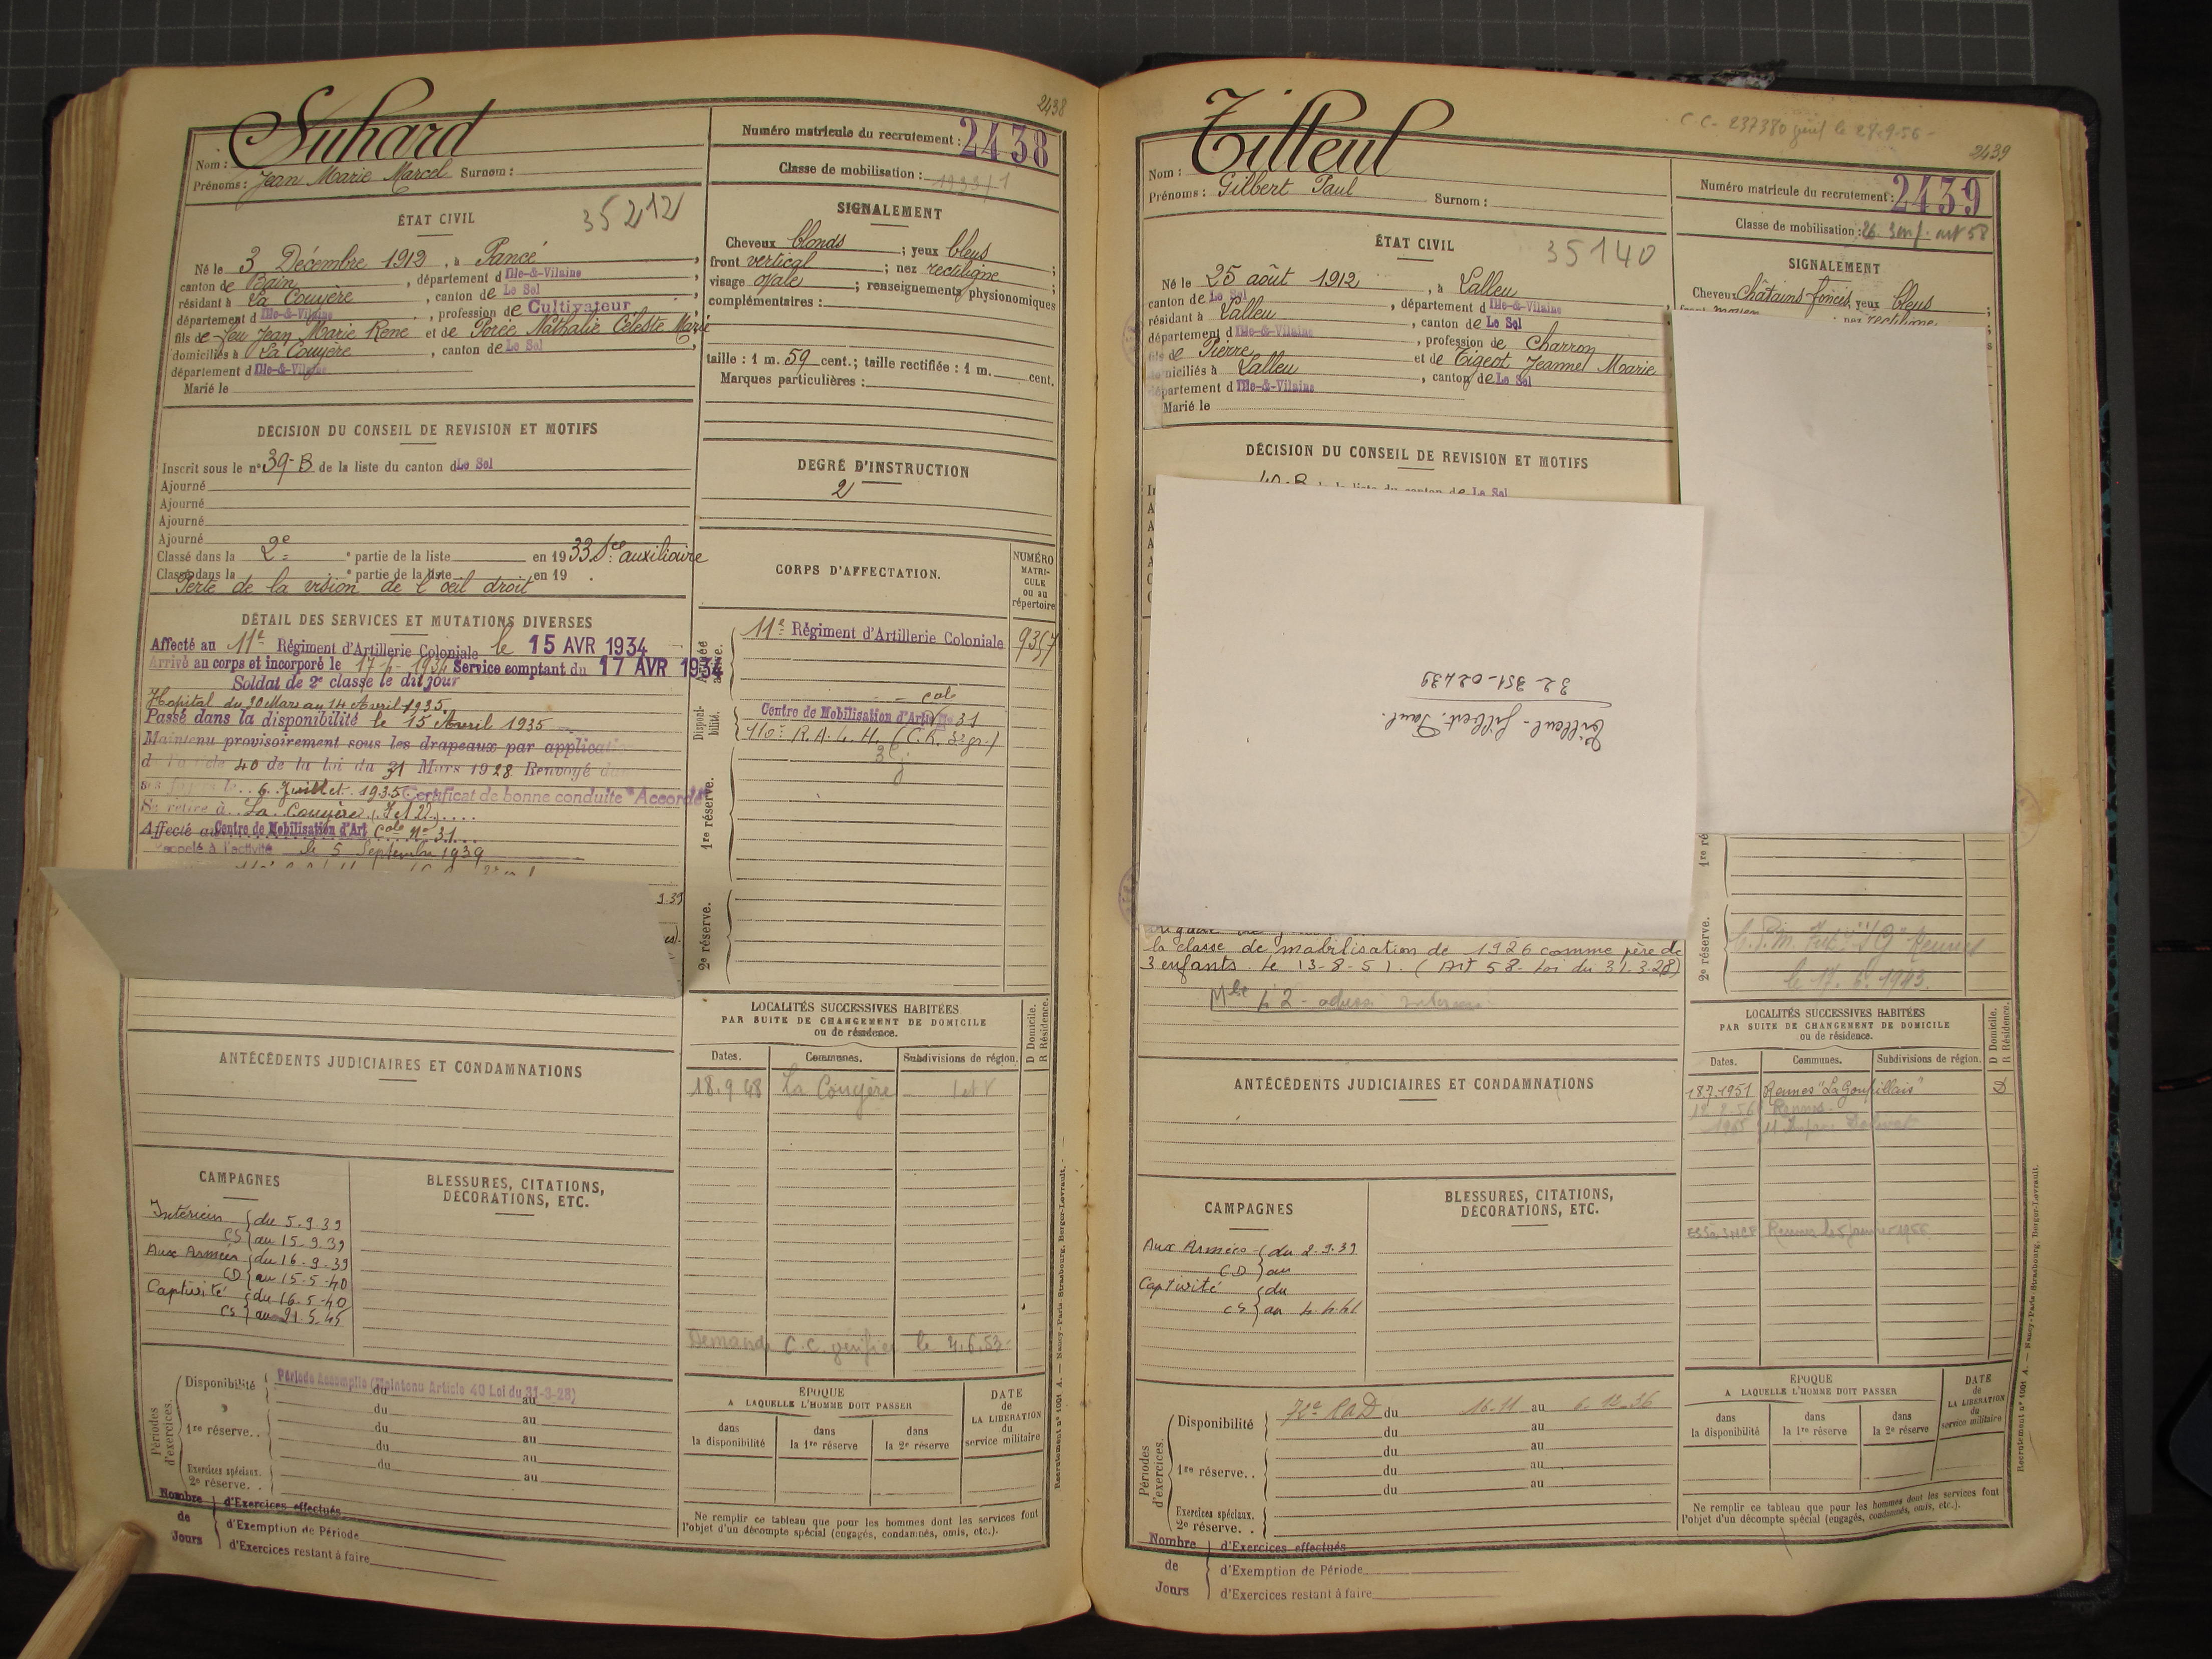 2438
Suhard
Nom :
Prénoms : Jean Marie Marcel Surnom :
Numéro matricule du recrutement : 2438
Classe de mobilisation : 1933/1
ÉTAT CIVIL
35212
Né le 3 Décembre 1912, à Pancé,
canton de Bain, département d Ille-&-Vilaine
résidant à La Couyère, canton de Le Sel,
département d Ille-&-Vilaine, profession de Cultivateur
fils de feu Jean Marie René et de Porée Nathalie Céleste Marie
domiciliés à La Couyère, canton de Le Sel,
département d Ille-&-Vilaine
Marié le
SIGNALEMENT
Cheveux blonds ; yeux bleus ;
front vertical ; nez rectiligne ;
visage ovale ; renseignements physionomiques
complémentaires :
taille : 1 m. 59 cent.; taille rectifiée : 1 m. cent.
Marques particulières :
DÉCISION DU CONSEIL DE REVISION ET MOTIFS
Inscrit sous le n° 39-B de la liste du canton d Le Sel
Ajourné
Ajourné
Ajourné
Ajourné
Classé dans la 2e partie de la liste en 1933. Sce auxiliaire
Classé dans la e partie de la liste en 19 .
Perte de la vision de l'œil droit
DEGRÉ D'INSTRUCTION
2
CORPS D'AFFECTATION.
NUMÉRO
MATRI-
CULE
ou au
répertoire
DÉTAIL DES SERVICES ET MUTATIONS DIVERSES
Affecté au 11e Régiment d'Artillerie Coloniale le 15 AVR 1934
Arrivé au corps et incorporé le 17-4-1934 Service comptant du 17 AVR 1934
Soldat de 2e classe le dit jour
Hopital du 30 Mars au 14 Avril 1935.
Passé dans la disponibilité le 15 Avril 1935
Maintenu provisoirement sous les drapeaux par applicati
40 de la loi du 31 Mars 1928 Renvoyé da
ses foyers le 6 Juillet 1935 Certificat de bonne conduite "Accordé"
Se retire à La Couyère (I et V)
Affecté au Centre de Mobilisation d'Art Cole No 31
Rappelé à l'activité le 5 Septembre 1939
9.39
Armée
active.
11e Régiment d'Artillerie Coloniale 9357
Disponi-
bilité.
Cole
Centre de Mobilisation d'Artie No 31
R. A. L. H.
1re réserve.
2e réserve.
LOCALITÉS SUCCESSIVES HABITÉES
PAR SUITE DE CHANGEMENT DE DOMICILE
ou de résidence.
D Domicile.
R Résidence.
Dates. Communes. Subdivisions de région.
18.9.48 La Couyère I et V
Demande C.C. le 4.6.53
ANTÉCÉDENTS JUDICIAIRES ET CONDAMNATIONS
CAMPAGNES
BLESSURES, CITATIONS,
DÉCORATIONS, ETC.
Intérieur du 5.9.39
CS au 15.9.39
Aux Armées du 16.9.39
CD au 15-5-40
Captivité du 16.5-40
CS au 21.5.45
Périodes
d'exercices.
Disponibilité Période Accomplie (Maintenu Article 40 Loi du 31-3-28)
du au
du au
1re réserve. . du au
du au
du au
Exercices spéciaux.
2e réserve. .
Nombre
de
Jours
d'Exercices effectués
d'Exemption de Période
d'Exercices restant à faire
ÉPOQUE
A LAQUELLE L'HOMME DOIT PASSER
dans
la disponibilité
dans
la 1re réserve
dans
la 2e réserve
DATE
de
LA LIBÉRATION
du
service militaire
Ne remplir ce tableau que pour les hommes dont les services font
l'objet d'un décompte spécial (engagés, condamnés, omis, etc.).
Recrutement n° 1001 A. — Nancy-Paris-Strasbourg, Berger-Levrault.
C C - 237380 le 28-9-56 -
2439
Tilleul
Nom :
Prénoms : Gilbert Paul Surnom :
Numéro matricule du recrutement : 2439
Classe de mobilisation : 26. art 58
ÉTAT CIVIL
35140
Né le 25 août 1912, à Lalleu,
canton de Le Sel, département d Ille-&-Vilaine
résidant à Lalleu, canton de Le Sel
département d Ille-&-Vilaine, profession de Charron
fils de Pierre et de Tigeot Jeanne Marie
domiciliés à Lalleu, canton de Le Sel
département d Ille-&-Vilaine
Marié le
SIGNALEMENT
Cheveux châtains foncés yeux bleus ;
front moyen nez rectiligne
DÉCISION DU CONSEIL DE REVISION ET MOTIFS
40-B de la liste du canton de Le Sel
Tilleul - Gilbert. Paul.
32 351-02439
la classe de mobilisation de 1926 comme père de
3 enfants. le 13-8-51. (Art 58- Loi du 31.3.28)
1re ré
2e réserve.
le 17. 6. 1943.
LOCALITÉS SUCCESSIVES HABITÉES
PAR SUITE DE CHANGEMENT DE DOMICILE
ou de résidence.
D Domicile.
R Résidence.
Dates. Communes. Subdivisions de région.
18.7.1951 Rennes "La Goupillais" D
Rennes
ANTÉCÉDENTS JUDICIAIRES ET CONDAMNATIONS
CAMPAGNES
BLESSURES, CITATIONS,
DÉCORATIONS, ETC.
Aux Armées du 2.9.39
CD au
Captivité du
CS au 4.4.41
Périodes
d'exercices.
Disponibilité RAD du 16-11 au 6-12-36
du au
du au
1re réserve. . du au
du au
Exercices spéciaux.
2e réserve. .
Nombre
de
Jours
d'Exercices effectués
d'Exemption de Période
d'Exercices restant à faire
ÉPOQUE
A LAQUELLE L'HOMME DOIT PASSER
dans
la disponibilité
dans
la 1re réserve
dans
la 2e réserve
DATE
de
LA LIBÉRATION
du
service militaire
Ne remplir ce tableau que pour les hommes dont les services font
l'objet d'un décompte spécial (engagés, condamnés, omis, etc.).
Recrutement n° 1001 A. — Nancy-Paris-Strasbourg, Berger-Levrault.